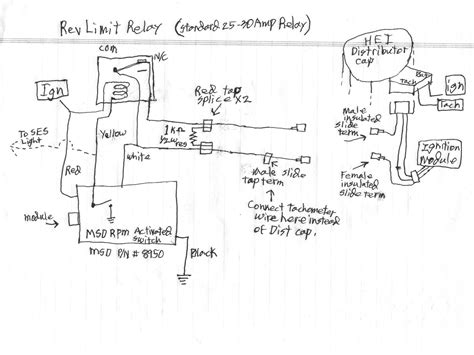 Rev Limit Relay (standard 25-30 Amp Relay)
com
N/C
Ign
Red tap
splice X2
HEI
Distributor
cap
Bat
Tach
ign
Tach
male
insulated
slide
term
Ignition
Module
Female
insulated
slide term
To SES
Light
Yellow
1K
res
white
Red
male slide
tap term
Connect tachometer
wire here instead
of Dist cap.
module
MSD RPM Activated
switch
MSD P/N # 8950
Black